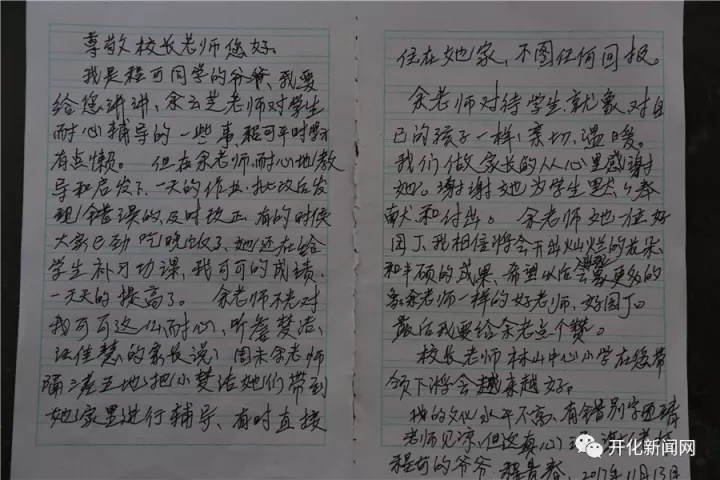 尊敬校长老师您好.
我是程可同学的爷爷,我要
给您讲讲,余云芝老师对学生
耐心辅导的一些事,程可平时学习
有点懒。但在余老师,耐心地教
导和启发下,一天的作业,批改后发
现错误的,及时改正,有的时候
大家已动吃晚饭了,她还在给
学生补习功课,我可可的成绩,
一天天的提高了。余老师不光对
我可可这么耐心,听詹梦洁,
汪佳慧的家长说,周末余老师
隔三差五地把小梦洁她们带到
她家里进行辅导、有时直接
住在她家,不图任何回报。
余老师对待学生,就象对自
己的孩子一样,亲切,温暖。
我们做家长的从心里感谢
她。谢谢她为学生默默奉
献和付出。余老师她一位好
园丁,我相信将会开出灿烂的花朵
和丰硕的成果、希望以后会象更多的
象余老师一样的好老师,好园丁。
最后我要给余老三个赞。
校长老师林山中心小学在您带
领下将会越来越好。
我的文化水平不高、有错别字还请
老师见凉,但这真心
程可的爷爷 程 春、2017年11月13日
开化新闻网